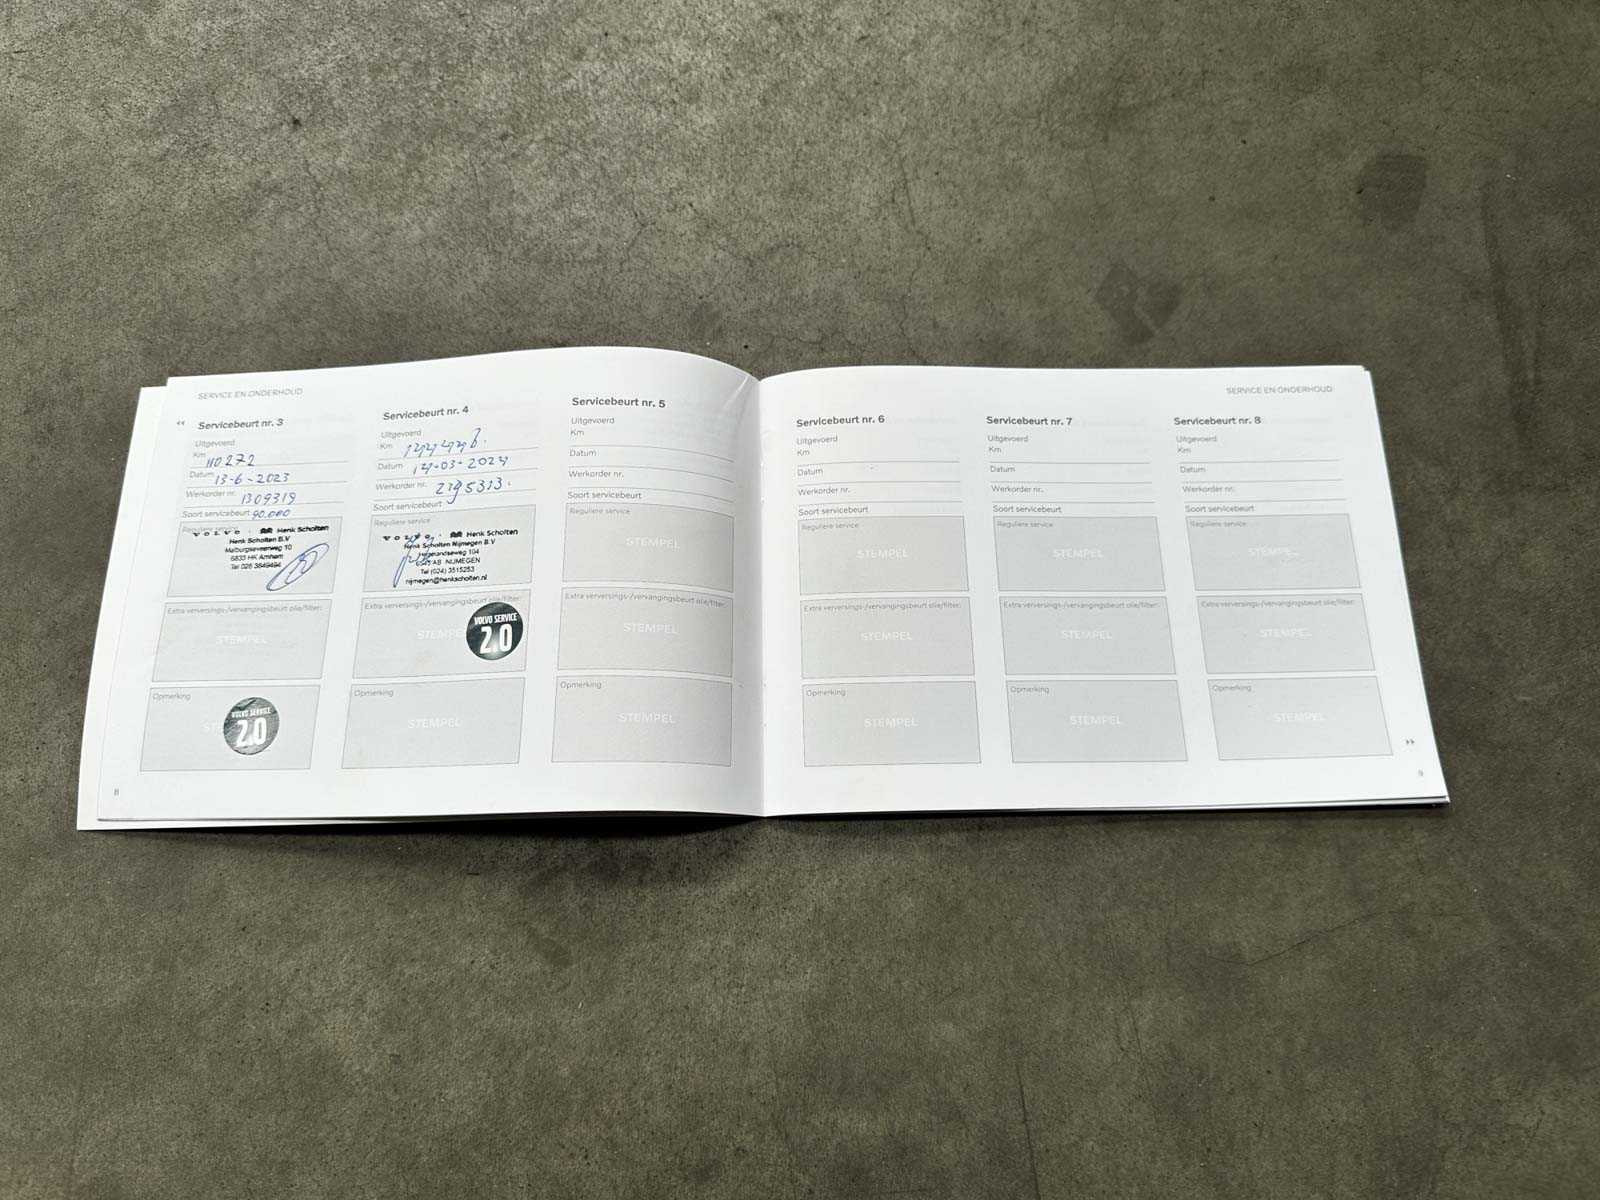 SERVICE EN ONDERHOUD
Servicebeurt nr. 3
Uitgevoerd
Km 110272
Datum 13-6-2023
Werkorder nr. 1309319
Soort servicebeurt 90.000
Reguliere service
VOLVO Henk Scholten
Henk Scholten B.V
Malburgseveerweg 10
6833 HK Arnhem
Tel 026 3649494
Extra verversings-/vervangingsbeurt olie/filter:
STEMPEL
Opmerking
VOLVO SERVICE
2.0
8
Servicebeurt nr. 4
Uitgevoerd
Km
Datum 14-03-2024
Werkorder nr.
Soort servicebeurt
Reguliere service
VOLVO Henk Scholten
Henk Scholten Nijmegen B.V
NIJMEGEN
Tel (024) 3515253
nijmegen@henkscholten.nl
Extra verversings-/vervangingsbeurt olie/filter:
STEMPEL
VOLVO SERVICE
2.0
Opmerking
STEMPEL
Servicebeurt nr. 5
Uitgevoerd
Km
Datum
Werkorder nr.
Soort servicebeurt
Reguliere service
STEMPEL
Extra verversings-/vervangingsbeurt olie/filter:
STEMPEL
Opmerking
STEMPEL
SERVICE EN ONDERHOUD
Servicebeurt nr. 6
Uitgevoerd
Km
Datum
Werkorder nr.
Soort servicebeurt
Reguliere service
STEMPEL
Extra verversings-/vervangingsbeurt olie/filter:
STEMPEL
Opmerking
STEMPEL
Servicebeurt nr. 7
Uitgevoerd
Km
Datum
Werkorder nr.
Soort servicebeurt
Reguliere service
STEMPEL
Extra verversings-/vervangingsbeurt olie/filter:
STEMPEL
Opmerking
STEMPEL
Servicebeurt nr. 8
Uitgevoerd
Km
Datum
Werkorder nr.
Soort servicebeurt
Reguliere service
STEMPEL
Extra verversings-/vervangingsbeurt olie/filter:
STEMPEL
Opmerking
STEMPEL
9